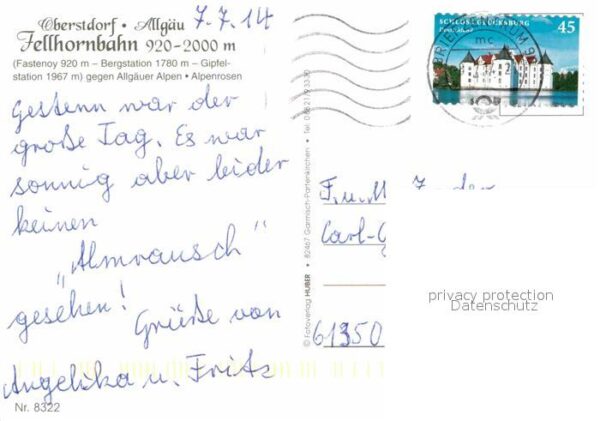 7.7.14
Oberstdorf · Allgäu
Fellhornbahn 920-2000 m
(Fastenoy 920 m – Bergstation 1780 m – Gipfel-
station 1967 m) gegen Allgäuer Alpen · Alpenrosen
Gestern war der
große Tag. Es war
sonnig aber leider
keinen
„Almrausch"
gesehen!
Grüße von
Angelika u. Fritz
Nr. 8322
© Fotoverlag HUBER · 82467 Garmisch-Partenkirchen
SCHLOSS GLÜCKSBURG
45
F. u. M.
Carl-
61350
privacy protection
Datenschutz